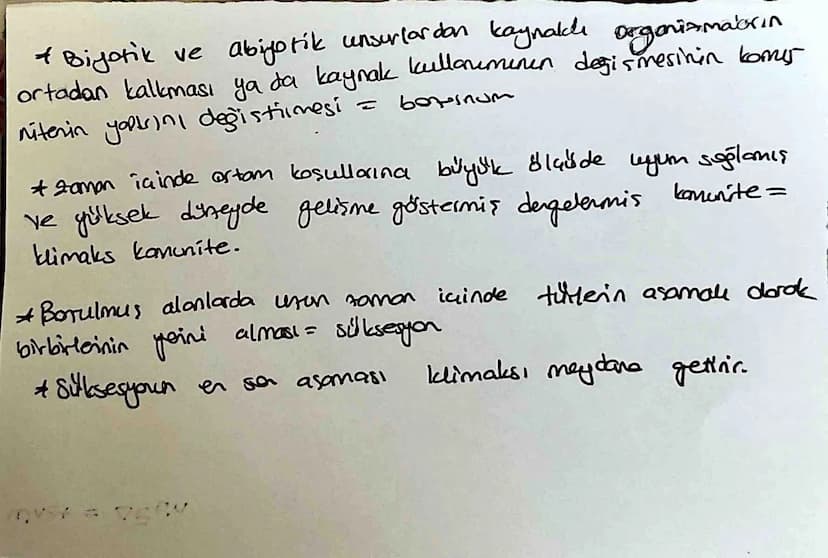 * Biyotik ve abiyotik unsurlardan kaynaklı organizmaların
ortadan kalkması ya da kaynak kullanımının değişmesinin komü
nitenin yapısını değiştirmesi = bozunum
* Zaman içinde ortam koşullarına büyük ölçüde uyum sağlamış
ve yüksek düzeyde gelişme göstermiş dengelenmiş komünite =
klimaks komünite.
* Bozulmuş alanlarda uzun zaman içinde türlerin aşamalı olarak
birbirlerinin yerini alması = süksesyon
* Süksesyonun en son aşaması klimaksı meydana getirir.